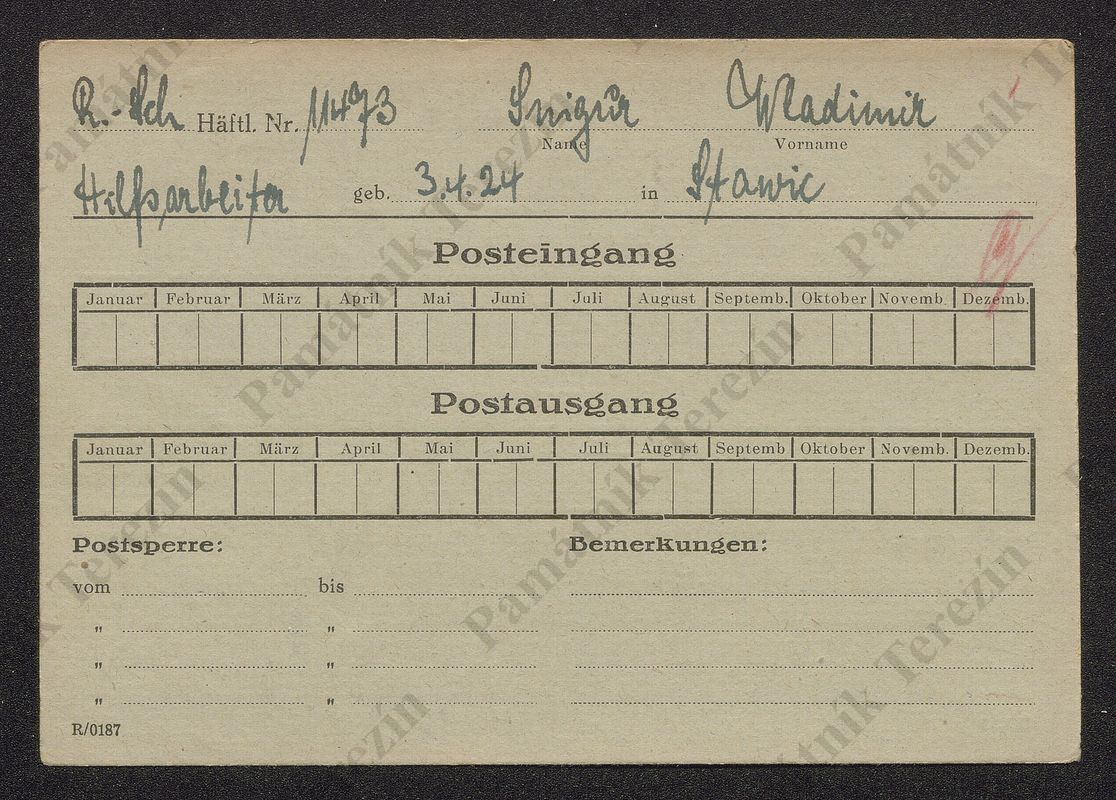 R.-Sch Häftl. Nr. 11473 Snigur Wladimir
Name Vorname
Hilfsarbeiter geb. 3.4.24 in Stawic
Posteingang
Januar Februar März April Mai Juni Juli August Septemb. Oktober Novemb. Dezemb.
Postausgang
Januar Februar März April Mai Juni Juli August Septemb Oktober Novemb. Dezemb.
Postsperre: Bemerkungen:
vom bis
" "
" "
" "
R/0187
Památník Terezín